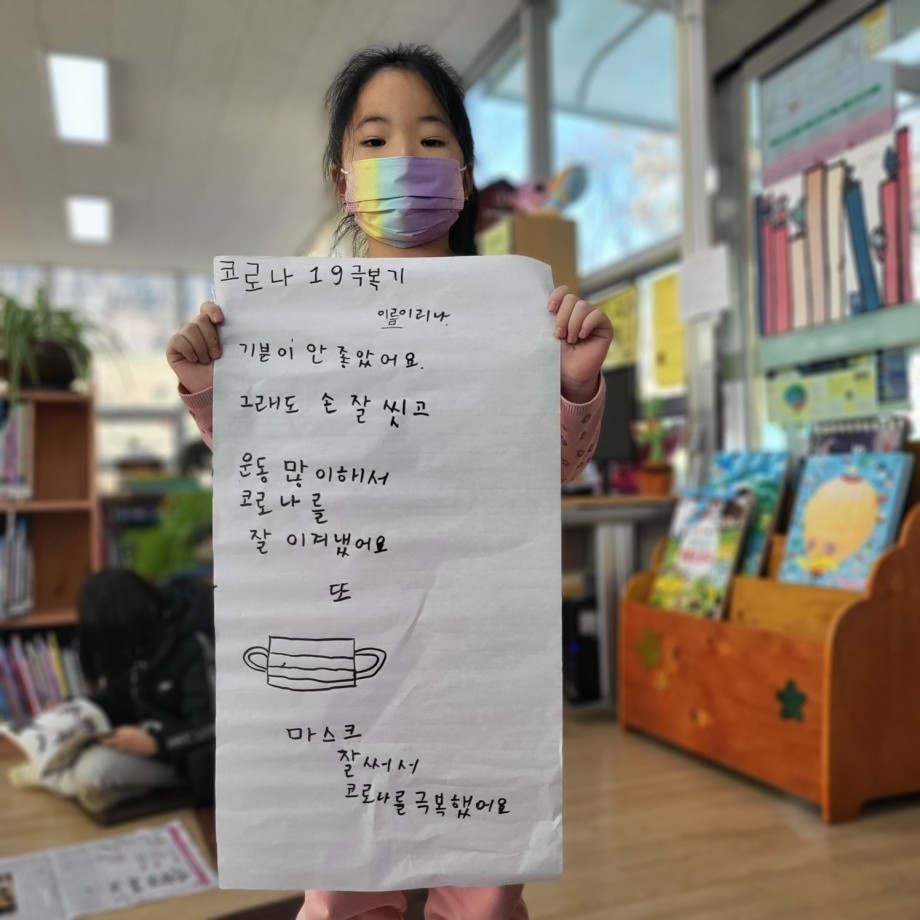 코로나 19극복기
이름이리나.
기분이 안 좋았어요.
그래도 손 잘 씻고
운동 많이해서
코로나를
잘 이겨냈어요
또
마스크
잘써서
코로나를극복했어요